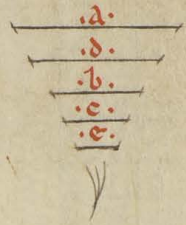 .a.
.d.
.b.
.c.
.e.